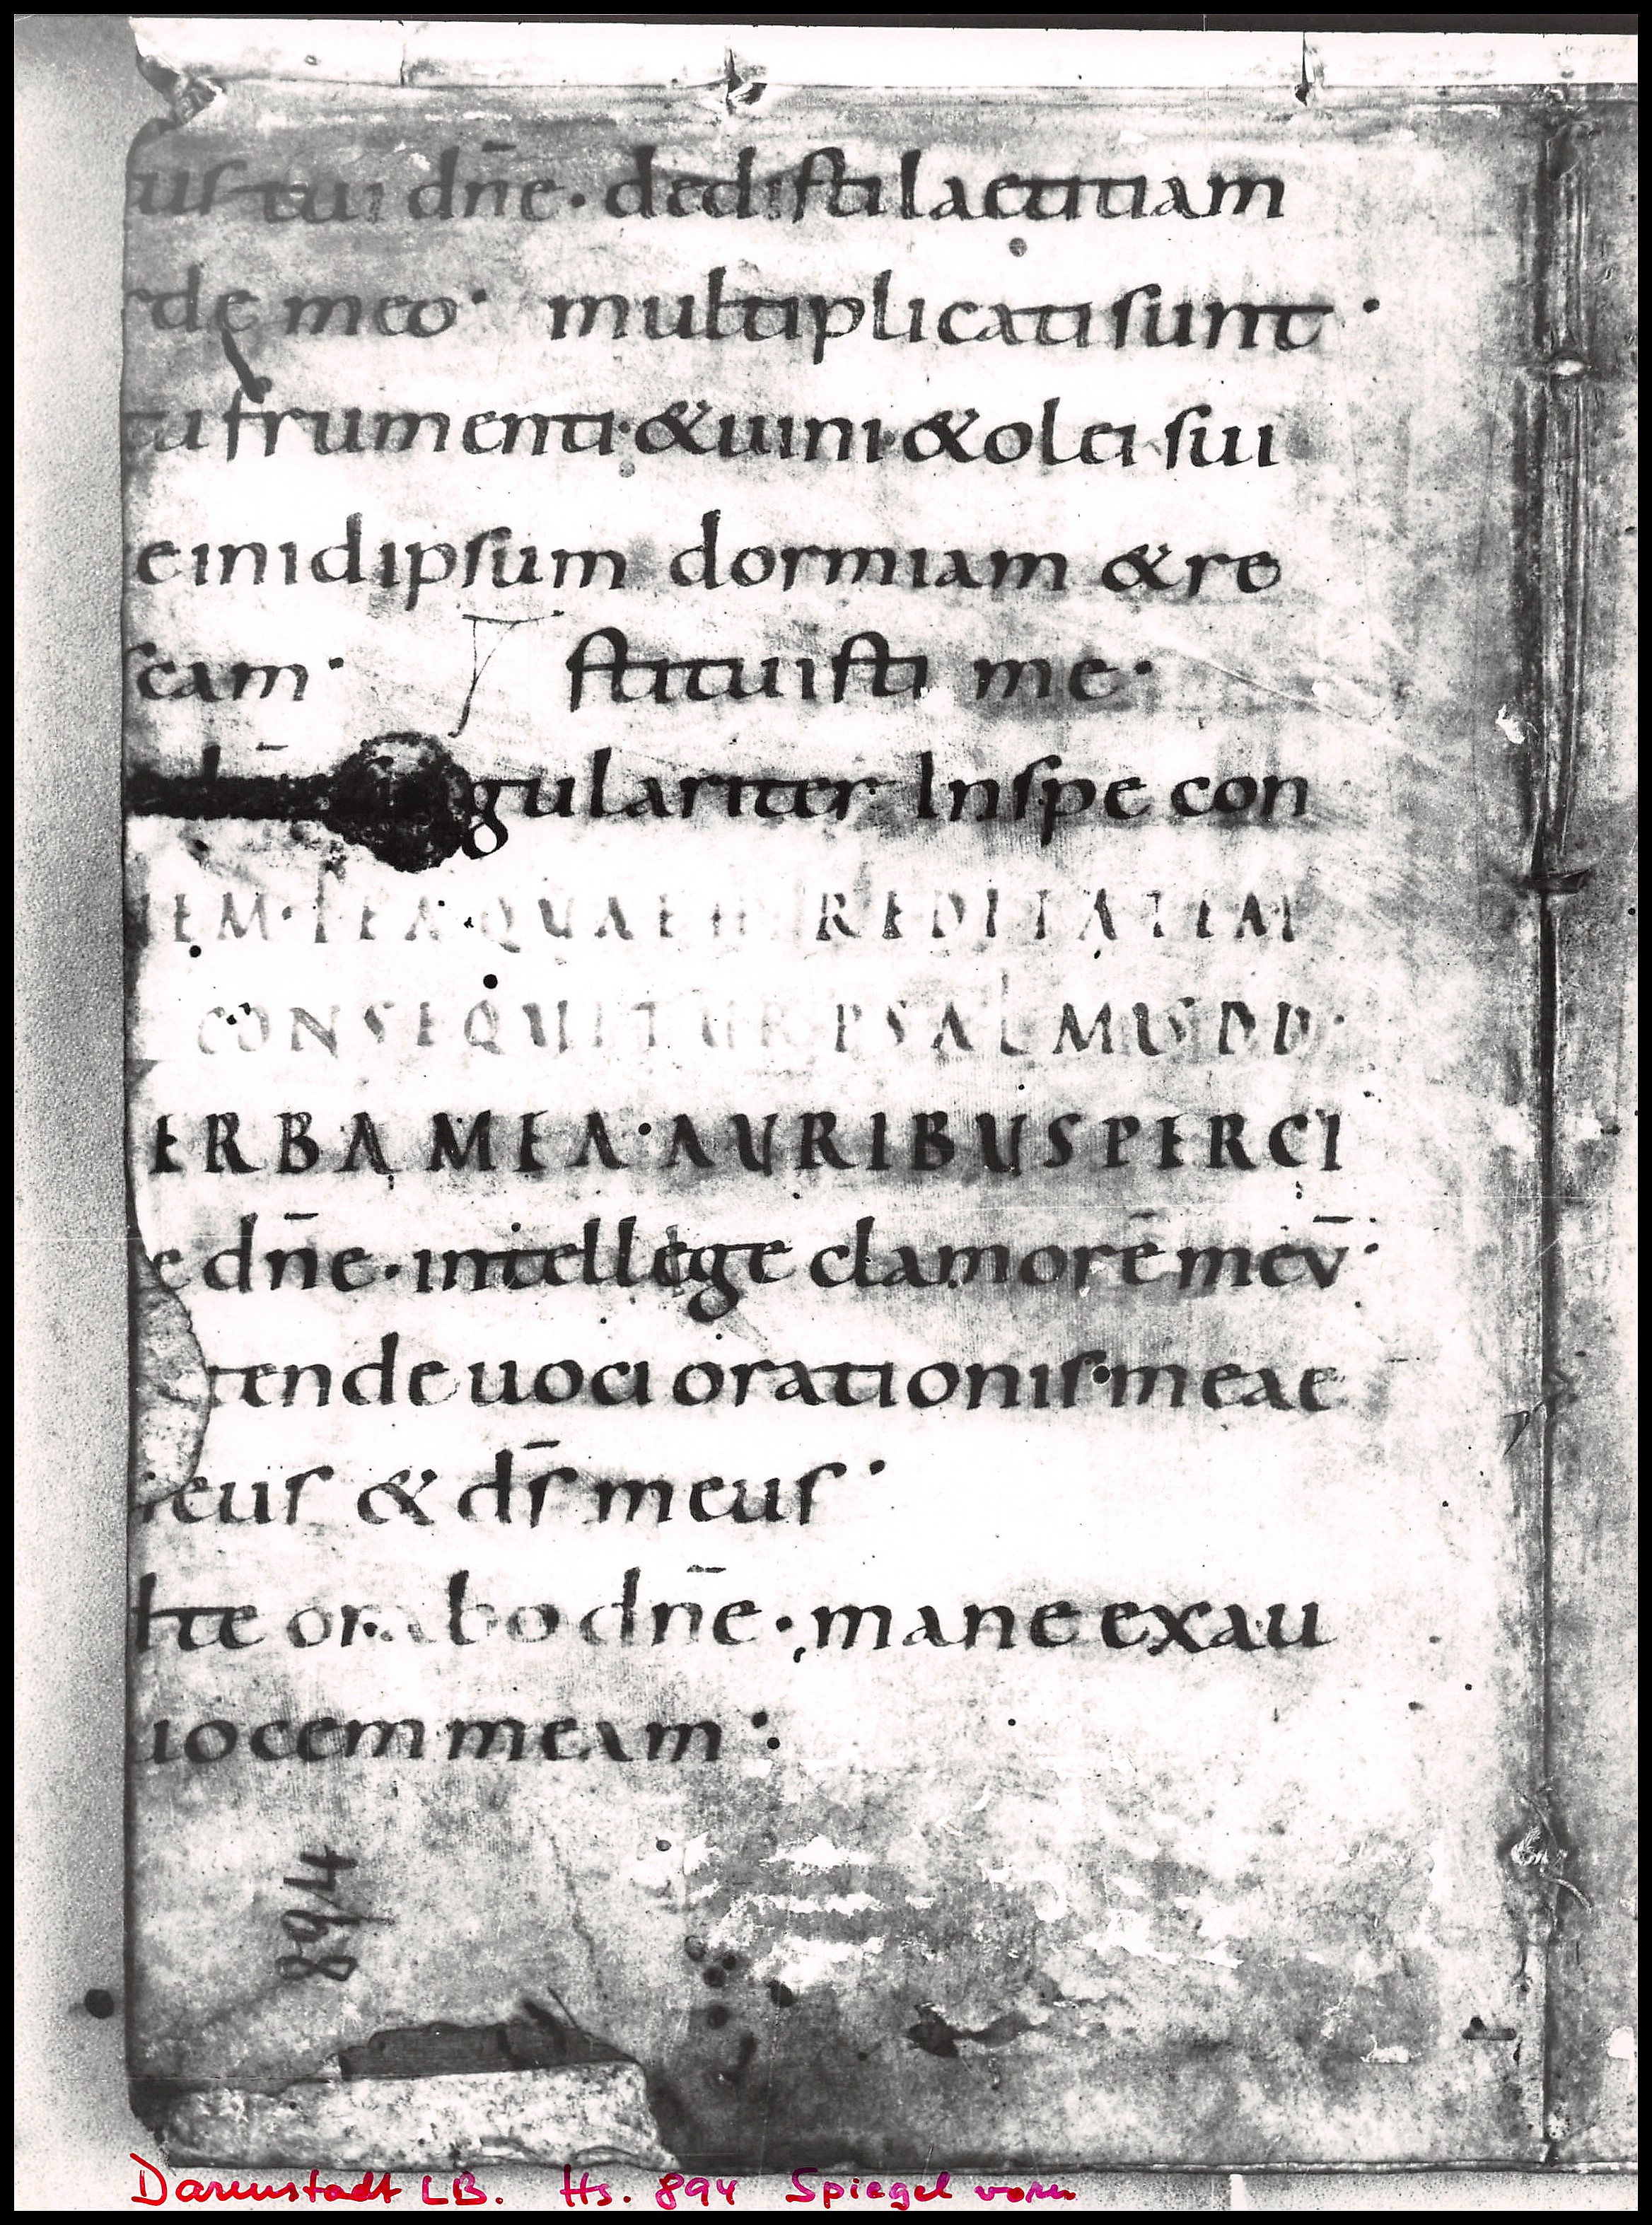 us tui dn̄e· dedisti laetitiam
rde meo· multiplicati sunt·
ta frumenti· & uini· & olei sui
e in idipsum dormiam & re
scam· stituisti me·
gulariter In spe con
EM· PRO EA QUAE HEREDITATEM
CONSEQUITUR PSALMUS DD·
ERBA MEA· AURIBUS PERCI
e dn̄e· intellege clamorē meū·
tende uoci orationis· meae
eus & ds̄ meus·
lte orabo dn̄e·, mane exau
uocem meam :
894
Darmstadt LB. Hs. 894 Spiegel vorn